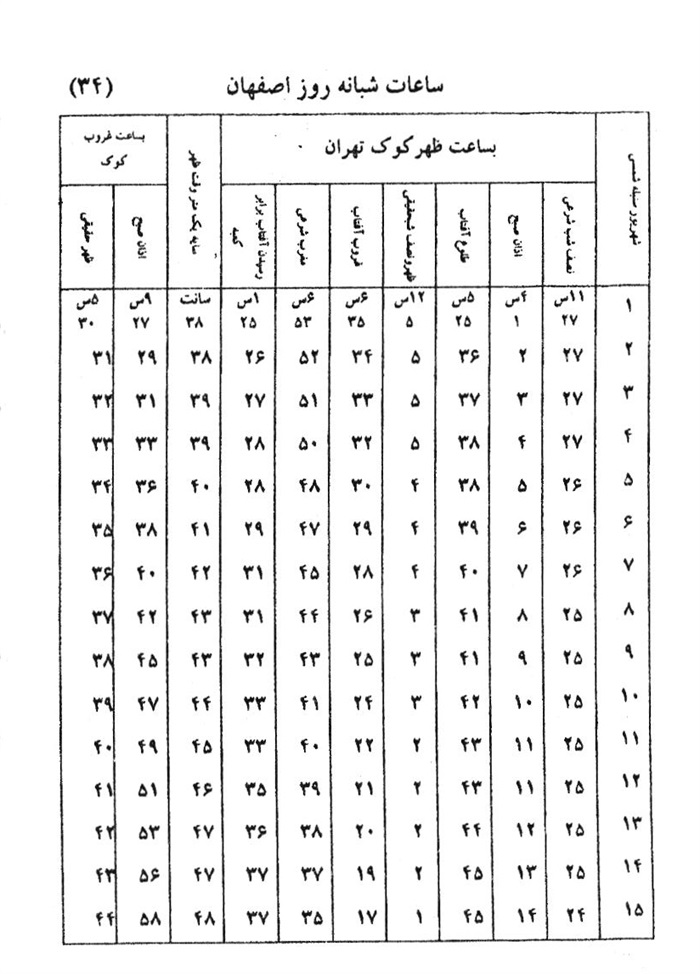 ساعات شبانه روز اصفهان (۳۴)
شهریور سنبله شمسی بساعت ظهرکوک تهران سایه یک متر وقت ظهر بساعت غروب کوک
نصف شب شرعی اذان صبح طلوع آفتاب ظهرونصف شبحقیقی غروب آفتاب مغرب شرعی رسیدن آفتاب برابر کعبه اذان صبح ظهر حقیقی
۱ ۱۱س ۴س ۵س ۱۲س ۶س ۶س ۱س سانت ۹س ۵س
۲۷ ۱ ۲۵ ۵ ۳۵ ۵۳ ۲۵ ۳۸ ۲۷ ۳۰
۲ ۲۷ ۲ ۳۶ ۵ ۳۴ ۵۲ ۲۶ ۳۸ ۲۹ ۳۱
۳ ۲۷ ۳ ۳۷ ۵ ۳۳ ۵۱ ۲۷ ۳۹ ۳۱ ۳۲
۴ ۲۷ ۴ ۳۸ ۵ ۳۲ ۵۰ ۲۸ ۳۹ ۳۳ ۳۳
۵ ۲۶ ۵ ۳۸ ۴ ۳۰ ۴۸ ۲۸ ۴۰ ۳۶ ۳۴
۶ ۲۶ ۶ ۳۹ ۴ ۲۹ ۴۷ ۲۹ ۴۱ ۳۸ ۳۵
۷ ۲۶ ۷ ۴۰ ۴ ۲۸ ۴۵ ۳۱ ۴۲ ۴۰ ۳۶
۸ ۲۵ ۸ ۴۱ ۳ ۲۶ ۴۴ ۳۱ ۴۳ ۴۲ ۳۷
۹ ۲۵ ۹ ۴۱ ۳ ۲۵ ۴۳ ۳۲ ۴۳ ۴۵ ۳۸
۱۰ ۲۵ ۱۰ ۴۲ ۳ ۲۴ ۴۱ ۳۳ ۴۴ ۴۷ ۳۹
۱۱ ۲۵ ۱۱ ۴۳ ۲ ۲۲ ۴۰ ۳۳ ۴۵ ۴۹ ۴۰
۱۲ ۲۵ ۱۱ ۴۳ ۲ ۲۱ ۳۹ ۳۵ ۴۶ ۵۱ ۴۱
۱۳ ۲۵ ۱۲ ۴۴ ۲ ۲۰ ۳۸ ۳۶ ۴۷ ۵۳ ۴۲
۱۴ ۲۵ ۱۳ ۴۵ ۲ ۱۹ ۳۷ ۳۷ ۴۷ ۵۶ ۴۳
۱۵ ۲۴ ۱۴ ۴۵ ۱ ۱۷ ۳۵ ۳۷ ۴۸ ۵۸ ۴۴